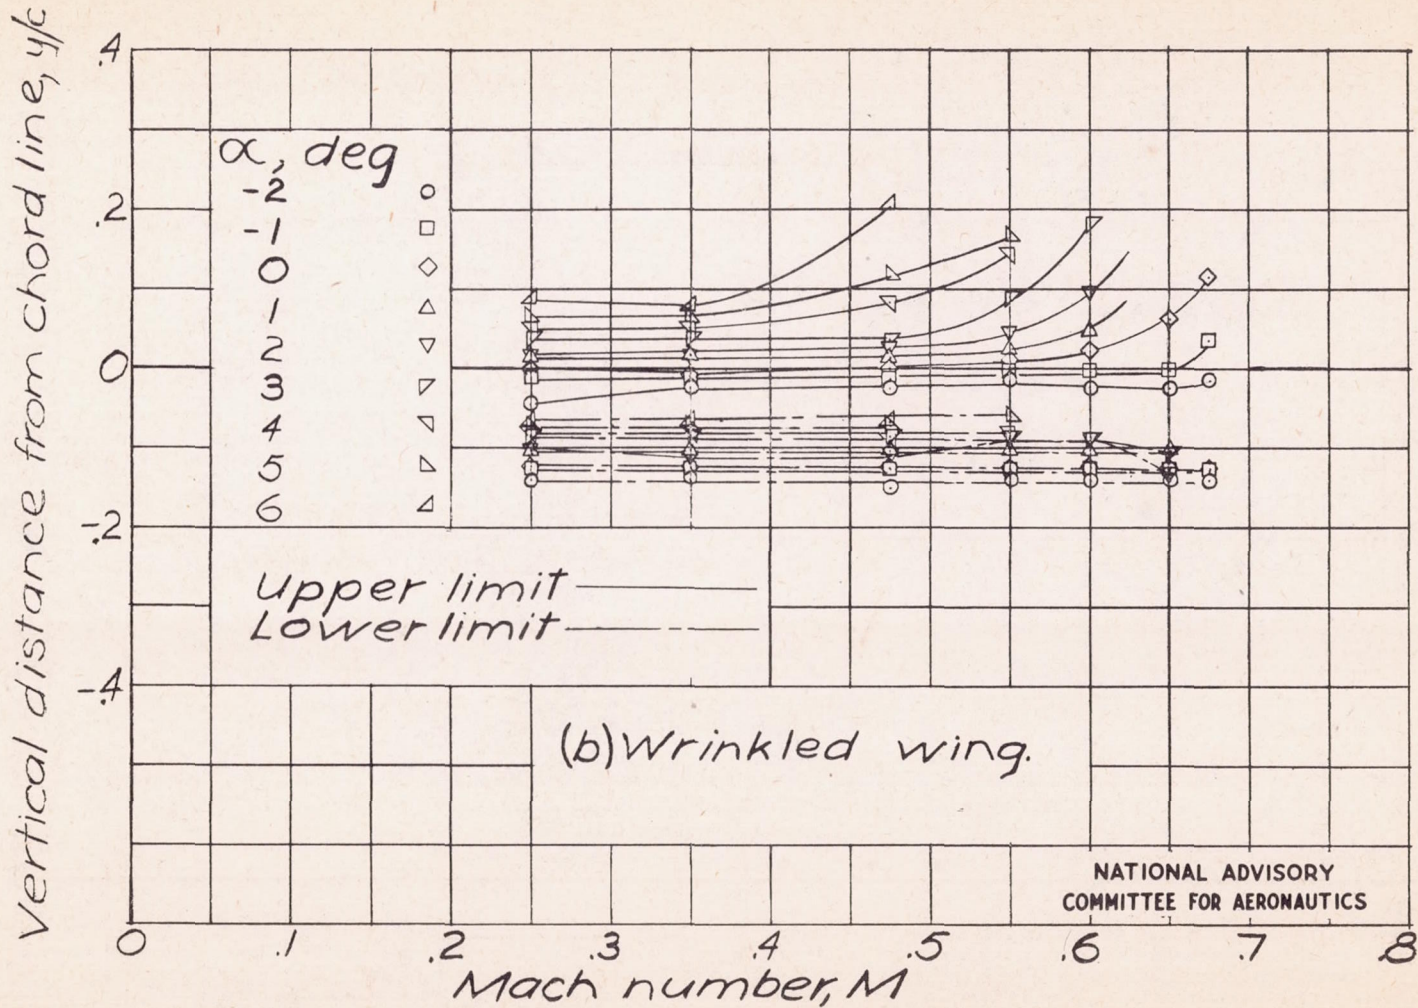 Vertical distance from chord line, y/c
.4
.2
0
-.2
-.4
α, deg
-2
-1
0
1
2
3
4
5
6
Upper limit
Lower limit
(b) Wrinkled wing.
NATIONAL ADVISORY
COMMITTEE FOR AERONAUTICS
0 .1 .2 .3 .4 .5 .6 .7 .8
Mach number, M